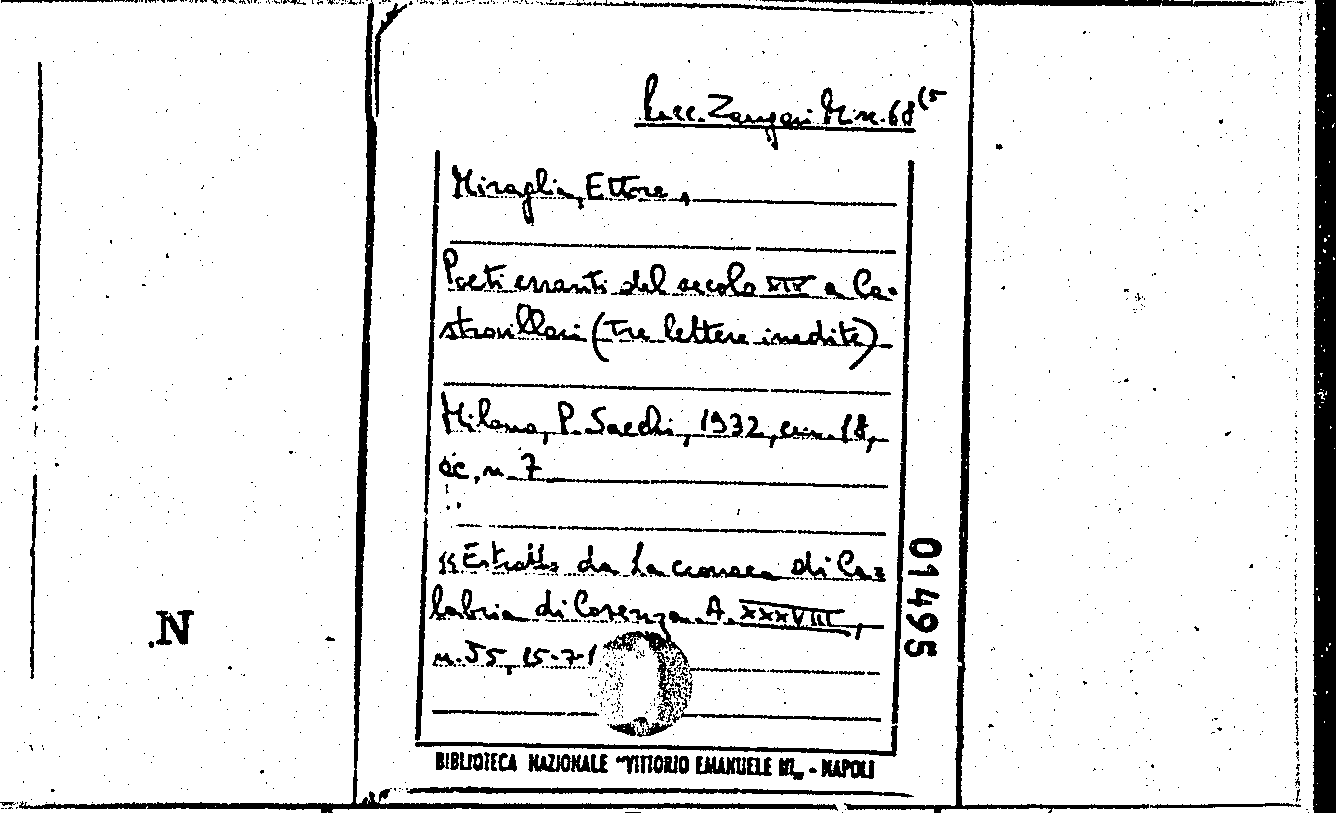 Racc. Zangari Misc. 68 (5
Miraglia, Ettore,
Poeti erranti del secolo XIX a Ca-
strovillari (Tre lettere inedite)
Milano, P. Sacchi, 1932, cm. 18,
8c, n. 7
«Estratto da La cronaca di Ca=
labria di Cosenza. A. XXXVIII,
n. 55, 15-7-1
01495
.N
BIBLIOTECA NAZIONALE "VITTORIO EMANUELE III„ - NAPOLI